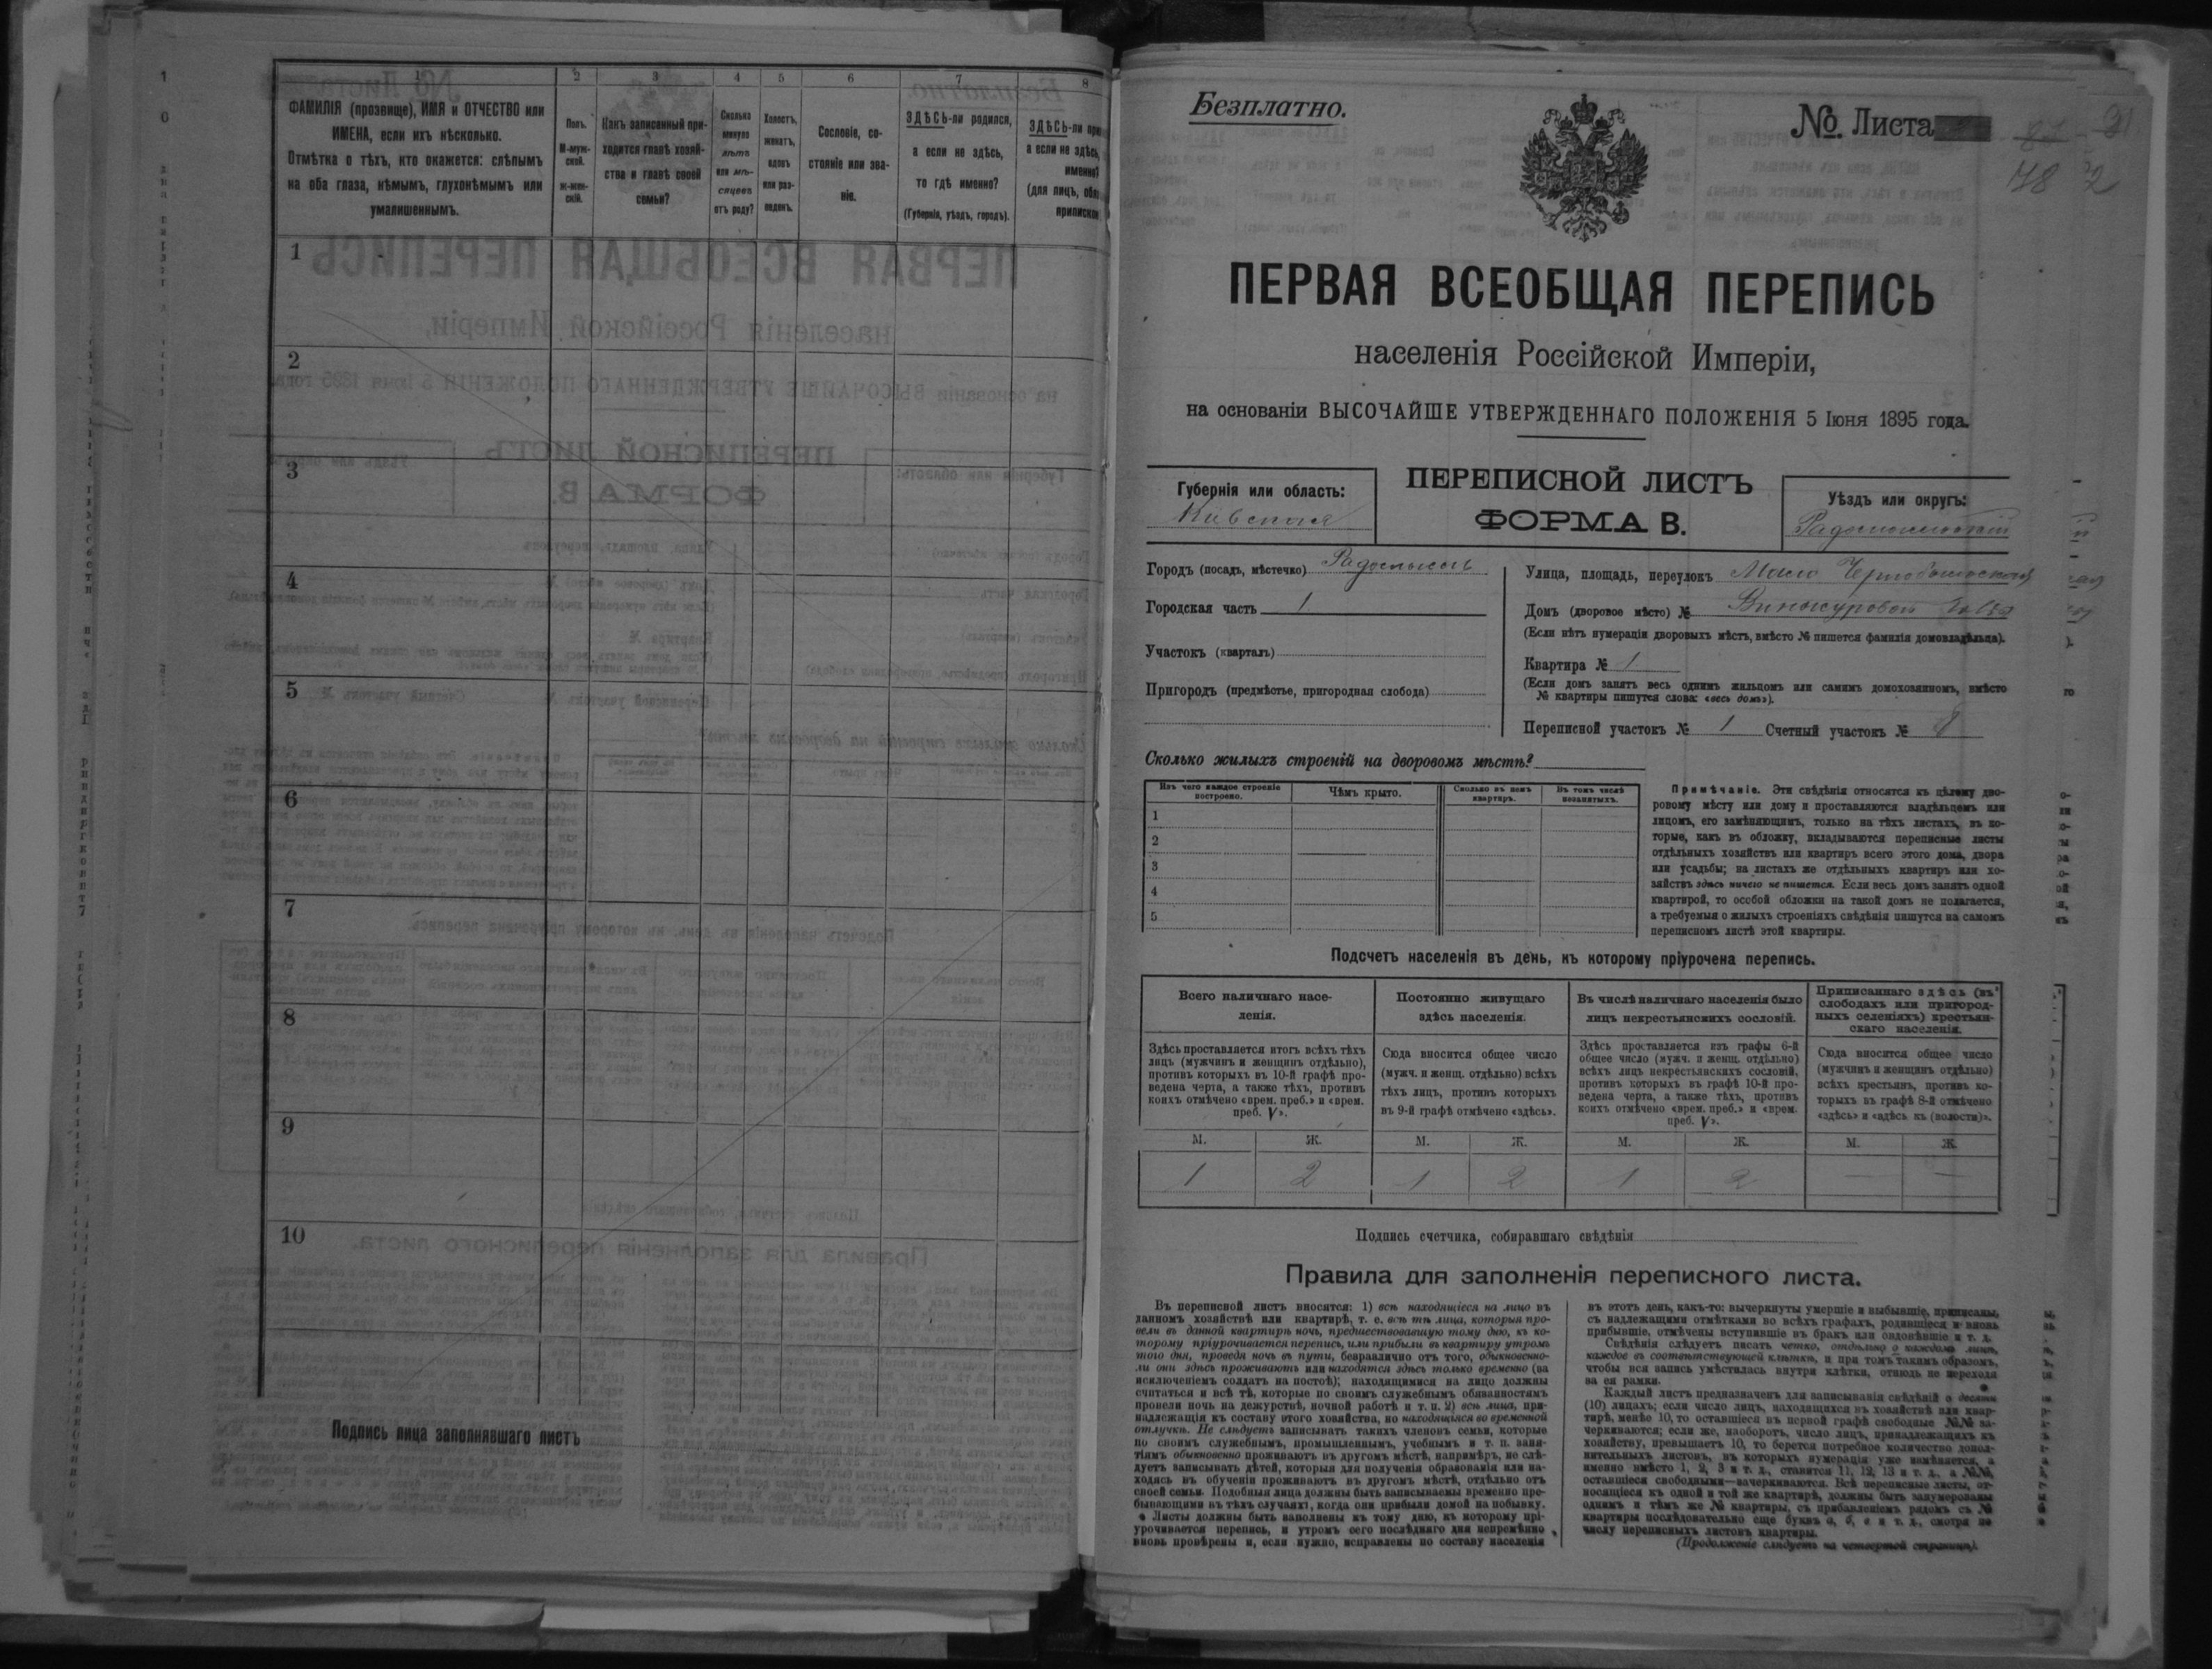 1 2 3 4 5 6 7 8
ФАМИЛІЯ (прозвище), ИМЯ и ОТЧЕСТВО или
ИМЕНА, если ихъ нѣсколько.
Отмѣтка о тѣхъ, кто окажется: слѣпымъ
на оба глаза, нѣмымъ, глухонѣмымъ или
умалишеннымъ.
Полъ.
М-муж-
ской.
ж-жен-
скій.
Какъ записанный при-
ходится главѣ хозяй-
ства и главѣ своей
семьи?
Сколько
минуло
лѣтъ
или мѣ-
сяцевъ
отъ роду?
Холостъ,
женатъ,
вдовъ
или раз-
веденъ.
Сословіе, со-
стояніе или зва-
ніе.
ЗДѢСЬ-ли родился,
а если не здѣсь,
то гдѣ именно?
(Губернія, уѣздъ, городъ).
ЗДѢСЬ-ли
а если не здѣсь,
именно?
(для лицъ,
1
2
3
4
5
6
7
8
9
10
Подпись лица заполнявшаго листъ
Безплатно.
№ Листа
48 2
ПЕРВАЯ ВСЕОБЩАЯ ПЕРЕПИСЬ
населенія Россійской Имперіи,
на основаніи ВЫСОЧАЙШЕ УТВЕРЖДЕННАГО ПОЛОЖЕНІЯ 5 Іюня 1895 года.
Губернія или область:
Кіевская
ПЕРЕПИСНОЙ ЛИСТЪ
ФОРМА В.
Уѣздъ или округъ:
Радомысльскій
Городъ (посадъ, мѣстечко) Радомысль
Городская часть 1
Участокъ (кварталъ)
Пригородъ (предмѣстье, пригородная слобода)
Улица, площадь, переулокъ Мало Чернобыльская
Домъ (дворовое мѣсто) № Винокуровой
(Если нѣтъ нумераціи дворовыхъ мѣстъ, вмѣсто № пишется фамилія домовладѣльца).
Квартира № 1
(Если домъ занятъ весь однимъ жильцомъ или самимъ домохозяиномъ, вмѣсто
№ квартиры пишутся слова: «весь домъ»).
Переписной участокъ № 1 Счетный участокъ № 8
Сколько жилыхъ строеній на дворовомъ мѣстѣ?
Изъ чего каждое строеніе
построено.
Чѣмъ крыто.
Сколько въ немъ
квартиръ.
Въ томъ числѣ
незанятыхъ.
1
2
3
4
5
Примѣчаніе. Эти свѣдѣнія относятся къ цѣлому дво-
ровому мѣсту или дому и проставляются владѣльцемъ или
лицомъ, его замѣняющимъ, только на тѣхъ листахъ, въ ко-
торые, какъ въ обложку, вкладываются переписные листы
отдѣльныхъ хозяйствъ или квартиръ всего этого дома, двора
или усадьбы; на листахъ же отдѣльныхъ квартиръ или хо-
зяйствъ здѣсь ничего не пишется. Если весь домъ занятъ одной
квартирой, то особой обложки на такой домъ не полагается,
а требуемыя о жилыхъ строеніяхъ свѣдѣнія пишутся на самомъ
переписномъ листѣ этой квартиры.
Подсчетъ населенія въ день, къ которому пріурочена перепись.
Всего наличнаго насе-
ленія.
Постоянно живущаго
здѣсь населенія.
Въ числѣ наличнаго населенія было
лицъ некрестьянскихъ сословій.
Приписаннаго здѣсь (въ
слободахъ или пригород-
ныхъ селеніяхъ) крестьян-
скаго населенія.
Здѣсь проставляется итогъ всѣхъ тѣхъ
лицъ (мужчинъ и женщинъ отдѣльно),
противъ которыхъ въ 10-й графѣ про-
ведена черта, а также тѣхъ, противъ
коихъ отмѣчено «врем. преб.» и «врем.
преб. V».
Сюда вносится общее число
(мужч. и женщ. отдѣльно) всѣхъ
тѣхъ лицъ, противъ которыхъ
въ 9-й графѣ отмѣчено «здѣсь».
Здѣсь проставляется изъ графы 6-й
общее число (мужч. и женщ. отдѣльно)
всѣхъ лицъ некрестьянскихъ сословій,
противъ которыхъ въ графѣ 10-й про-
ведена черта, а также тѣхъ, противъ
коихъ отмѣчено «врем. преб.» и «врем.
преб. V».
Сюда вносится общее число
(мужчинъ и женщинъ отдѣльно)
всѣхъ крестьянъ, противъ ко-
торыхъ въ графѣ 8-й отмѣчено
«здѣсь» и «здѣсь къ (волости)».
М. Ж. М. Ж. М. Ж. М. Ж.
1 2 1 2 1 2 — —
Подпись счетчика, собиравшаго свѣдѣнія
Правила для заполненія переписного листа.
Въ переписной листъ вносятся: 1) всѣ находящіеся на лицо въ
данномъ хозяйствѣ или квартирѣ, т. е. всѣ тѣ лица, которыя про-
вели въ данной квартирѣ ночь, предшествовавшую тому дню, къ ко-
торому пріурочивается перепись, или прибыли въ квартиру утромъ
того дня, проведя ночь въ пути, безразлично отъ того, обыкновенно-
ли они здѣсь проживаютъ или находятся здѣсь только временно (за
исключеніемъ солдатъ на постоѣ); находящимися на лицо должны
считаться и всѣ тѣ, которые по своимъ служебнымъ обязанностямъ
провели ночь на дежурствѣ, ночной работѣ и т. п. 2) всѣ лица, при-
надлежащія къ составу этого хозяйства, но находящіяся во временной
отлучкѣ. Не слѣдуетъ записывать такихъ членовъ семьи, которые
по своимъ служебнымъ, промышленнымъ, учебнымъ и т. п. заня-
тіямъ обыкновенно проживаютъ въ другомъ мѣстѣ, напримѣръ, не слѣ-
дуетъ записывать дѣтей, которыя для полученія образованія или на-
ходясь въ обученіи проживаютъ въ другомъ мѣстѣ, отдѣльно отъ
своей семьи. Подобныя лица должны быть записываемы временно пре-
бывающими въ тѣхъ случаяхъ, когда они прибыли домой на побывку.
Листы должны быть заполнены къ тому дню, къ которому прі-
урочивается перепись, и утромъ сего послѣдняго дня непремѣнно
вновь провѣрены и, если нужно, исправлены по составу населенія
въ этотъ день, какъ-то: вычеркнуты умершіе и выбывшіе, приписаны,
съ надлежащими отмѣтками во всѣхъ графахъ, родившіеся и вновь
прибывшіе, отмѣчены вступившіе въ бракъ или овдовѣвшіе и т. д.
Свѣдѣнія слѣдуетъ писать четко, отдѣльно о каждомъ лицѣ,
каждое въ соотвѣтствующей клѣткѣ, и при томъ такимъ образомъ,
чтобы вся запись умѣстилась внутри клѣтки, отнюдь не переходя
за ея рамки.
Каждый листъ предназначенъ для записыванія свѣдѣній о десяти
(10) лицахъ; если число лицъ, находящихся въ хозяйствѣ или квар-
тирѣ, менѣе 10, то оставшіеся въ первой графѣ свободные №№ за-
черкиваются; если же, наоборотъ, число лицъ, принадлежащихъ къ
хозяйству, превышаетъ 10, то берется потребное количество допол-
нительныхъ листовъ, въ которыхъ нумерація уже измѣняется, а
именно вмѣсто 1, 2, 3 и т. д., ставится 11, 12, 13 и т. д., а №№,
оставшіеся свободными—зачеркиваются. Всѣ переписные листы, от-
носящіеся къ одной и той же квартирѣ, должны быть занумерованы
однимъ и тѣмъ же № квартиры, съ прибавленіемъ рядомъ съ №
квартиры послѣдовательно еще буквъ а, б, в и т. д., смотря по
числу переписныхъ листовъ квартиры.
(Продолженіе слѣдуетъ на четвертой страницѣ).